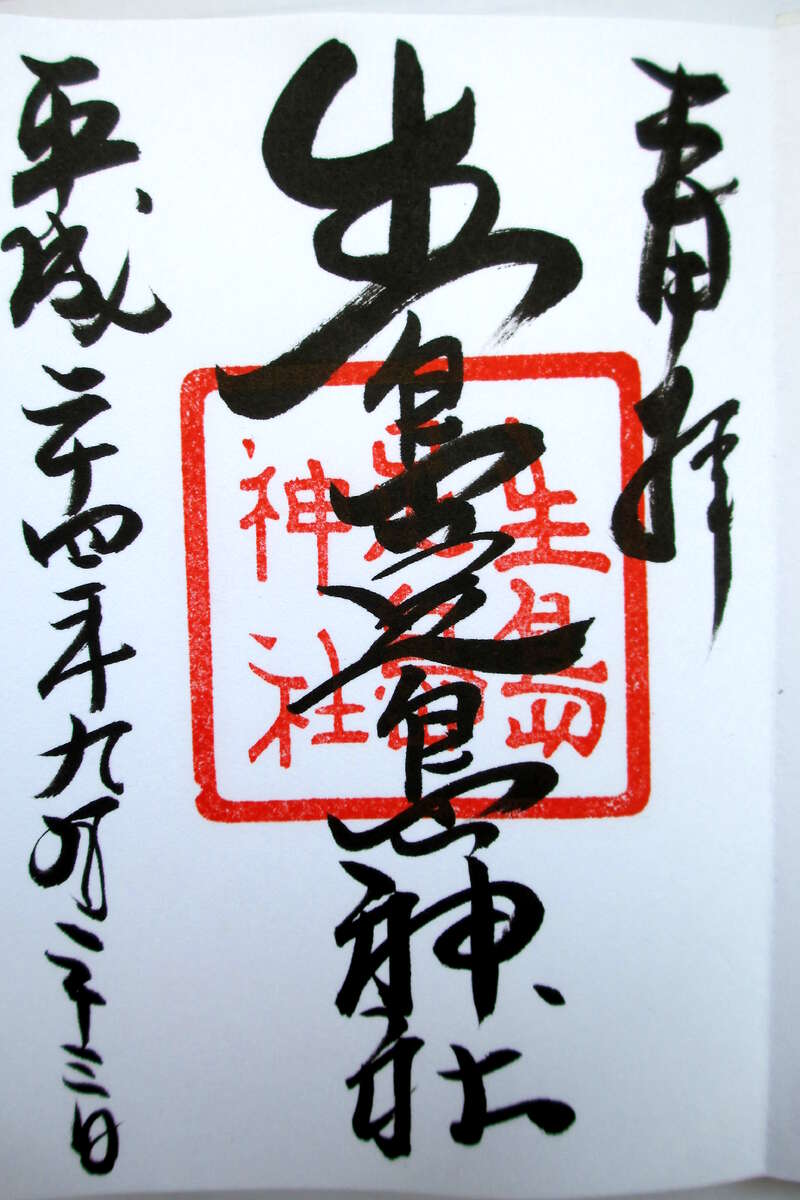 奉拝
生島足島神社
生島
足島
神社
平成二十四年九月二十三日